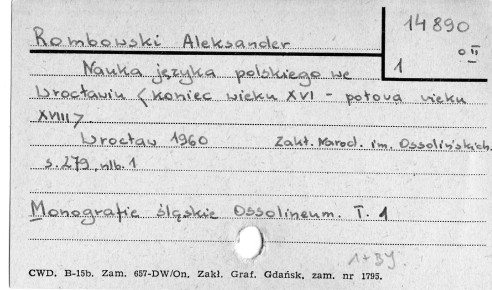 14890
Rombowski Aleksander
1
Nauka języka polskiego we
Wrocławiu <koniec wieku XVI - połowa wieku
XVIII>.
Wrocław 1960 Zakł. Narod. im. Ossolińskich.
s. 279, nlb. 1
Monografie śląskie Ossolineum. T. 1
CWD. B-15b. Zam. 657-DW/On. Zakł. Graf. Gdańsk, zam. nr 1795.